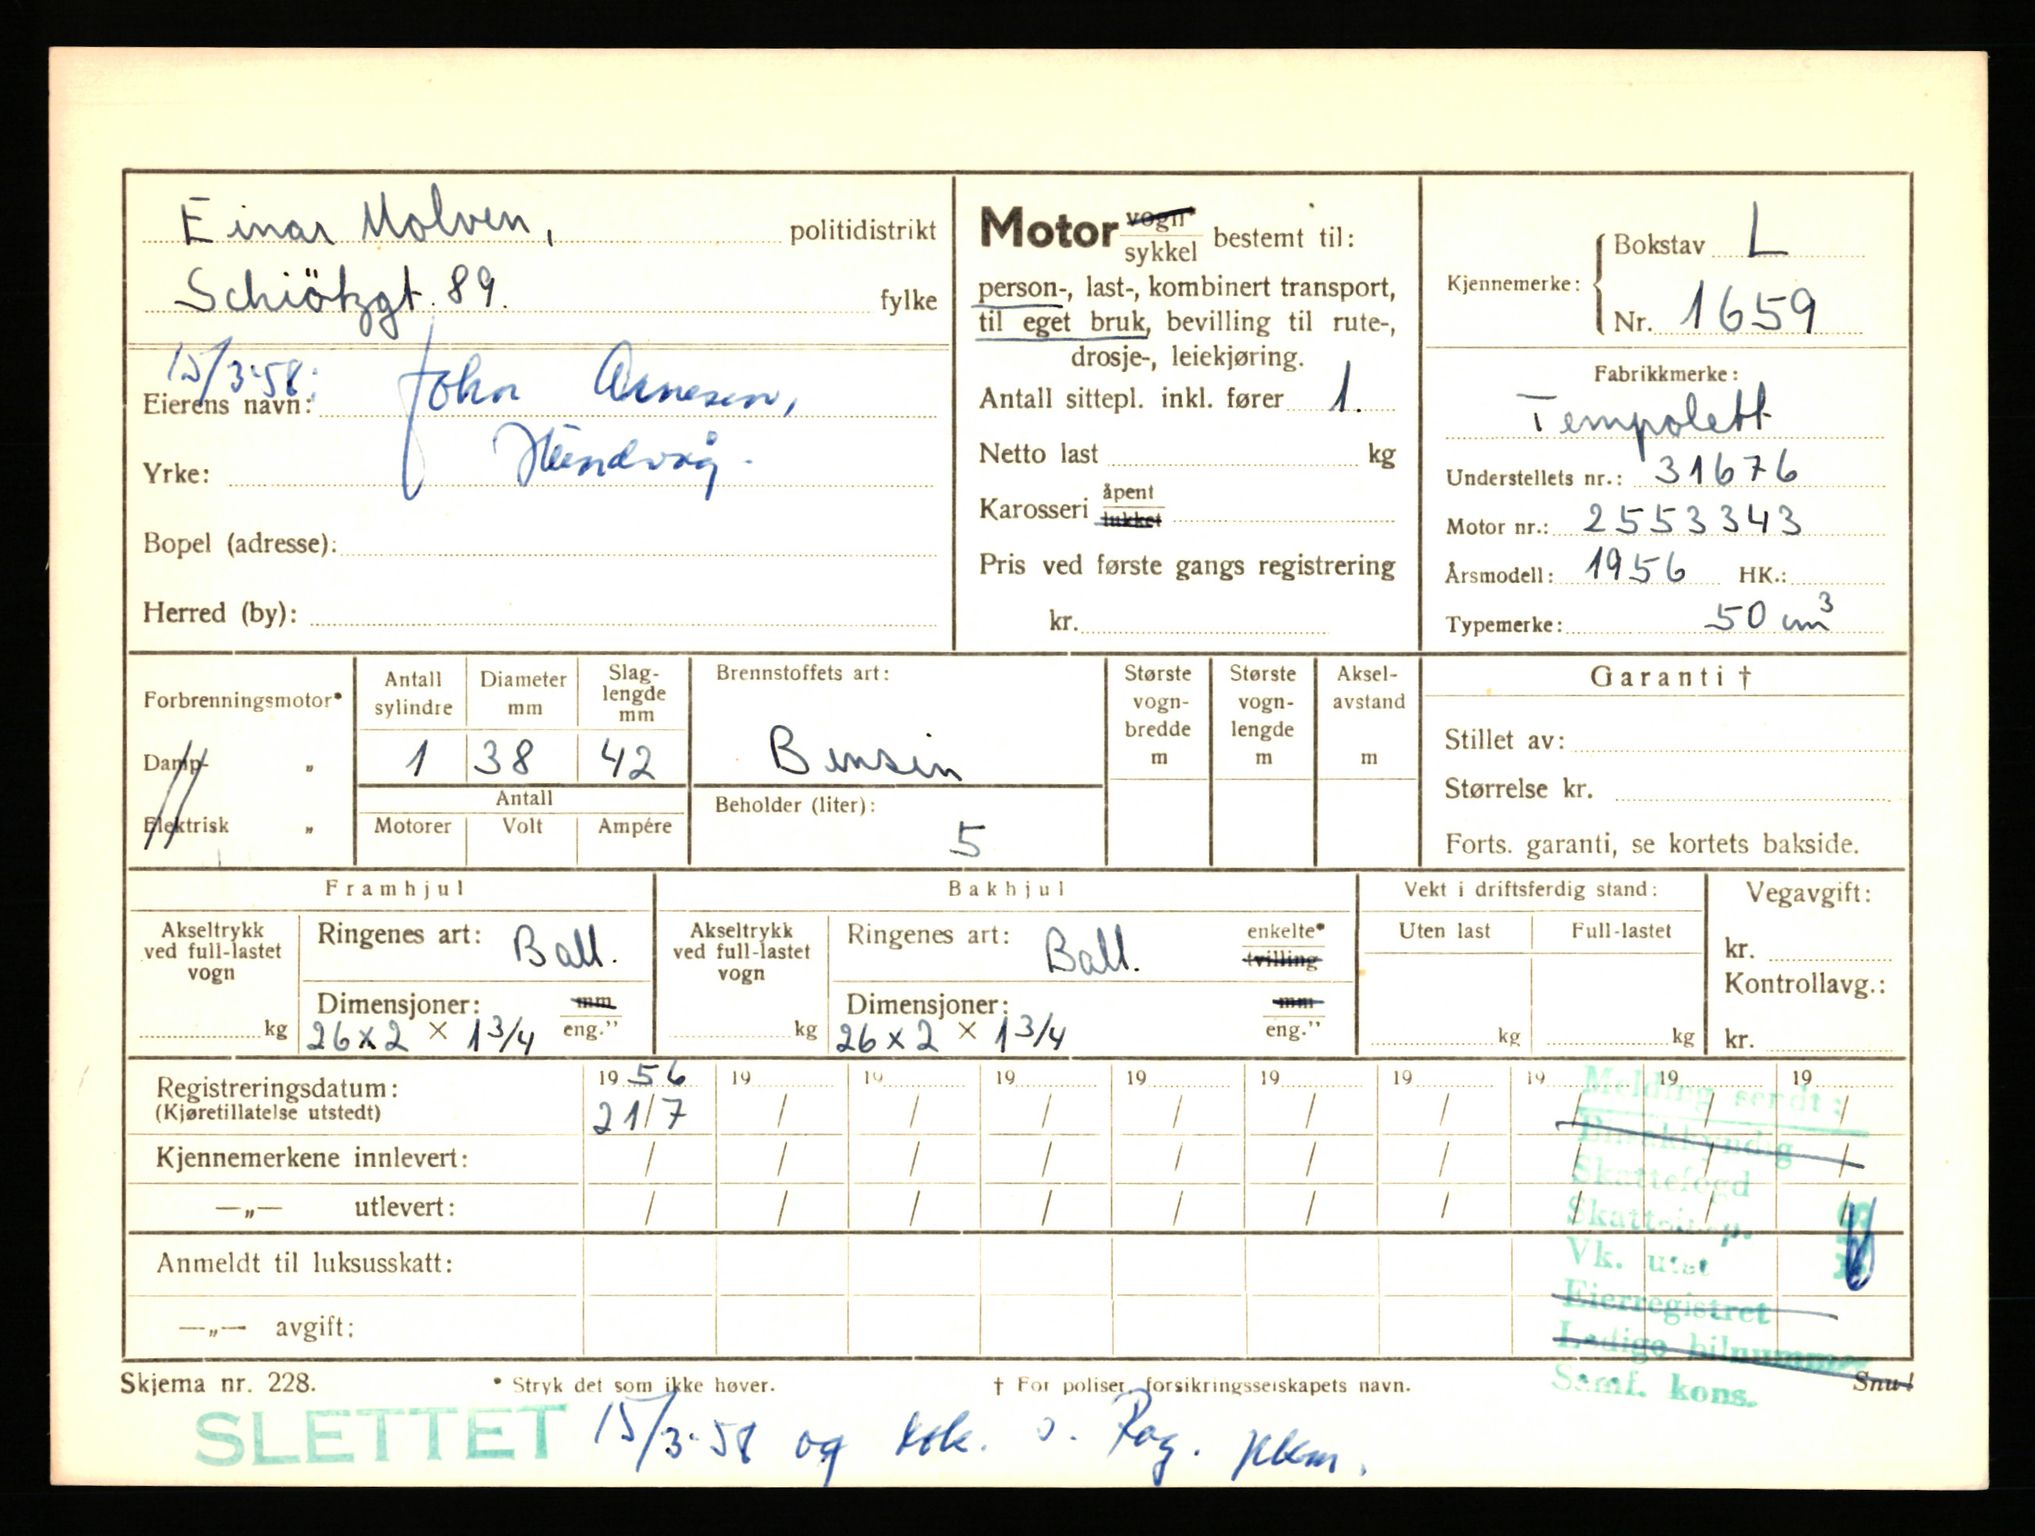 Einar Molven, politidistrikt
Schiötzgt. 89. fylke
15/3-58:
Eierens navn: John Arnesen,
Yrke: Hundvåg.
Bopel (adresse):
Herred (by):
Motor vogn* sykkel bestemt til:
person-, last-, kombinert transport,
til eget bruk, bevilling til rute-,
drosje-, leiekjøring.
Antall sittepl. inkl. fører 1.
Netto last kg
Karosseri åpent lukket
Pris ved første gangs registrering
kr.
Kjennemerke: Bokstav L
Nr. 1659
Fabrikkmerke:
Tempolett
Understellets nr.: 31676
Motor nr.: 2553343
Årsmodell: 1956 HK.:
Typemerke: 50 cm³
Forbrenningsmotor*
Damp- „
Elektrisk „
Antall sylindre
1
Diameter mm
38
Slag-lengde mm
42
Antall
Motorer Volt Ampére
Brennstoffets art:
Bensin
Beholder (liter):
5
Største vogn-bredde m
Største vogn-lengde m
Aksel-avstand m
Garanti †
Stillet av:
Størrelse kr.
Forts. garanti, se kortets bakside.
Framhjul
Akseltrykk ved full-lastet vogn
kg
Ringenes art: Ball.
Dimensjoner: mm eng."
26 x 2 × 1 3/4
Bakhjul
Akseltrykk ved full-lastet vogn
kg
Ringenes art: Ball. enkelte* tvilling
Dimensjoner: mm eng."
26 x 2 × 1 3/4
Vekt i driftsferdig stand:
Uten last Full-lastet
kg kg
Vegavgift:
kr.
Kontrollavg.:
kr.
Registreringsdatum: 1956 19 19 19 19 19 19 19 19 19
(Kjøretillatelse utstedt) 21/7 / / / / / / / / /
Kjennemerkene innlevert: / / / / / / / / / /
—„— utlevert: / / / / / / / / / /
Anmeldt til luksusskatt:
—„— avgift:
Melding sendt:
Skattefogd
Skatteinsp.
Vk. utst
Eierregistret
Ledige bilnummer
Samf. kons.
Skjema nr. 228. * Stryk det som ikke høver. † For poliser, forsikringsselskapets navn. Snu!
SLETTET 15/3-58 og